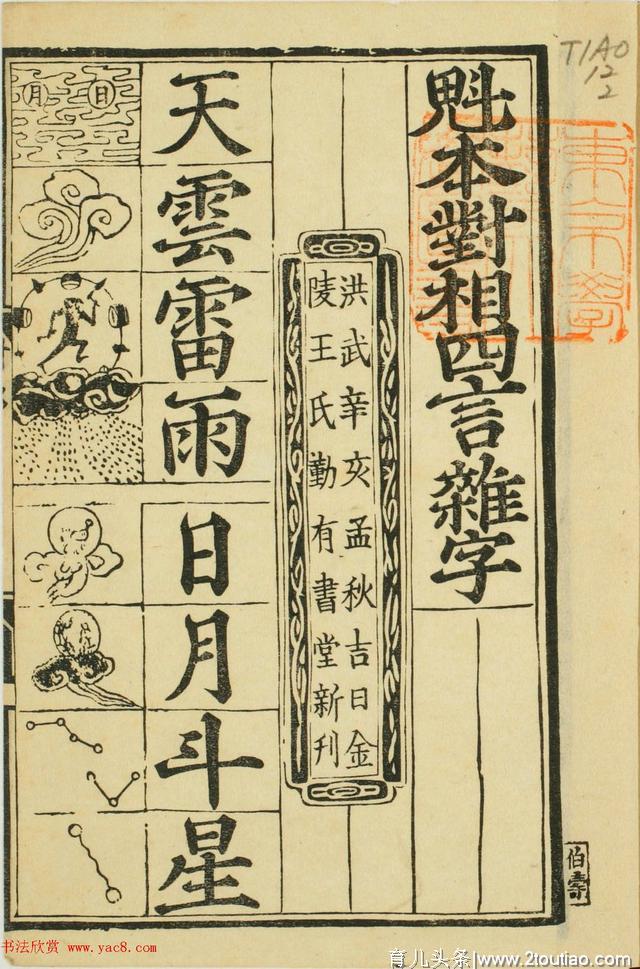 TIAO
12
2
魁本對相四言雜字
洪武辛亥孟秋吉日金
陵王氏勤有書堂新刊
天雲雷雨
日月斗星
日
月
伯壽
书法欣赏 www.yac8.com
育儿头条/www.2toutiao.com